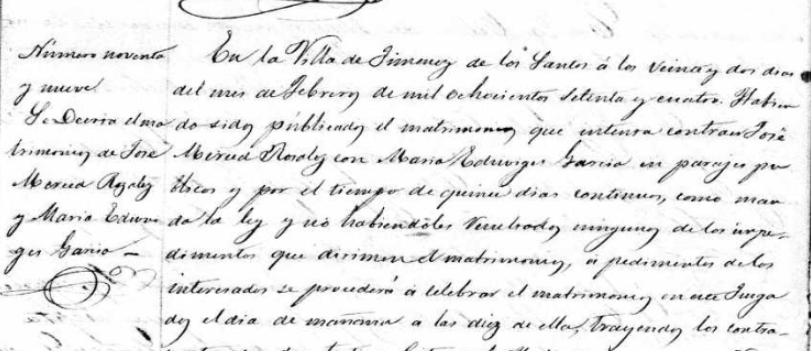 Número noventa
y nueve.
Se Decreta el ma
trimonio de José
Merced Rosalez
y Maria Eduvi
ges Garcia
En la Villa de Jimenez de los Santos á los veinte y dos dias
del mes de Febrero de mil ochocientos setenta y cuatro. Habien
do sido publicado el matrimonio que intenta contraer José
Merced Rosalez con Maria Eduviges Garcia en parajes pu
blicos y por el tiempo de quince dias continuos, como man
da la ley y no habiendoles resultado ninguno de los impe-
dimentos que dirimen el matrimonio, á pedimentos de los
interesados se procederá á celebrar el matrimonio en este Juzga
do el dia de mañana a las diez de ella, trayendo los contra-